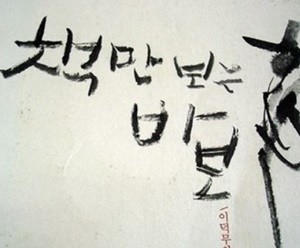 책만 보는
바보
이덕무